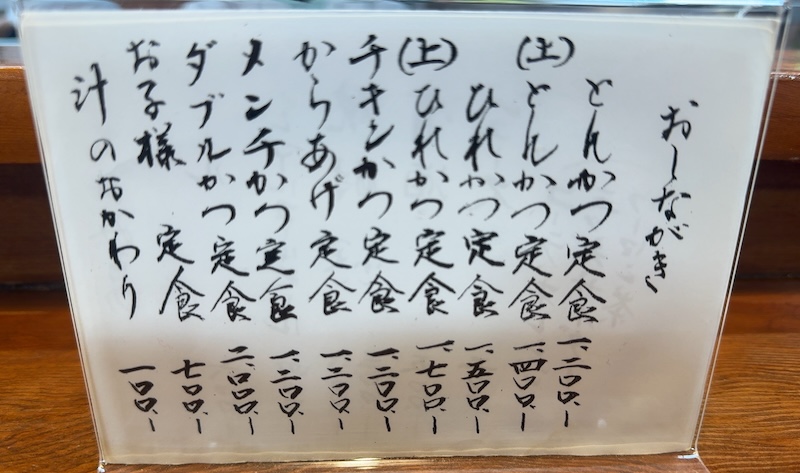 おしながき
とんかつ定食 一、二〇〇、ー
(上)とんかつ定食 一、四〇〇、ー
ひれかつ定食 一、五〇〇、ー
(上)ひれかつ定食 一、七〇〇、ー
チキンかつ定食 一、二〇〇、ー
からあげ定食 一、二〇〇、ー
メンチかつ定食 一、二〇〇、ー
ダブルかつ定食 二、〇〇〇、ー
お子様定食 七〇〇、ー
汁のおかわり 一〇〇、ー